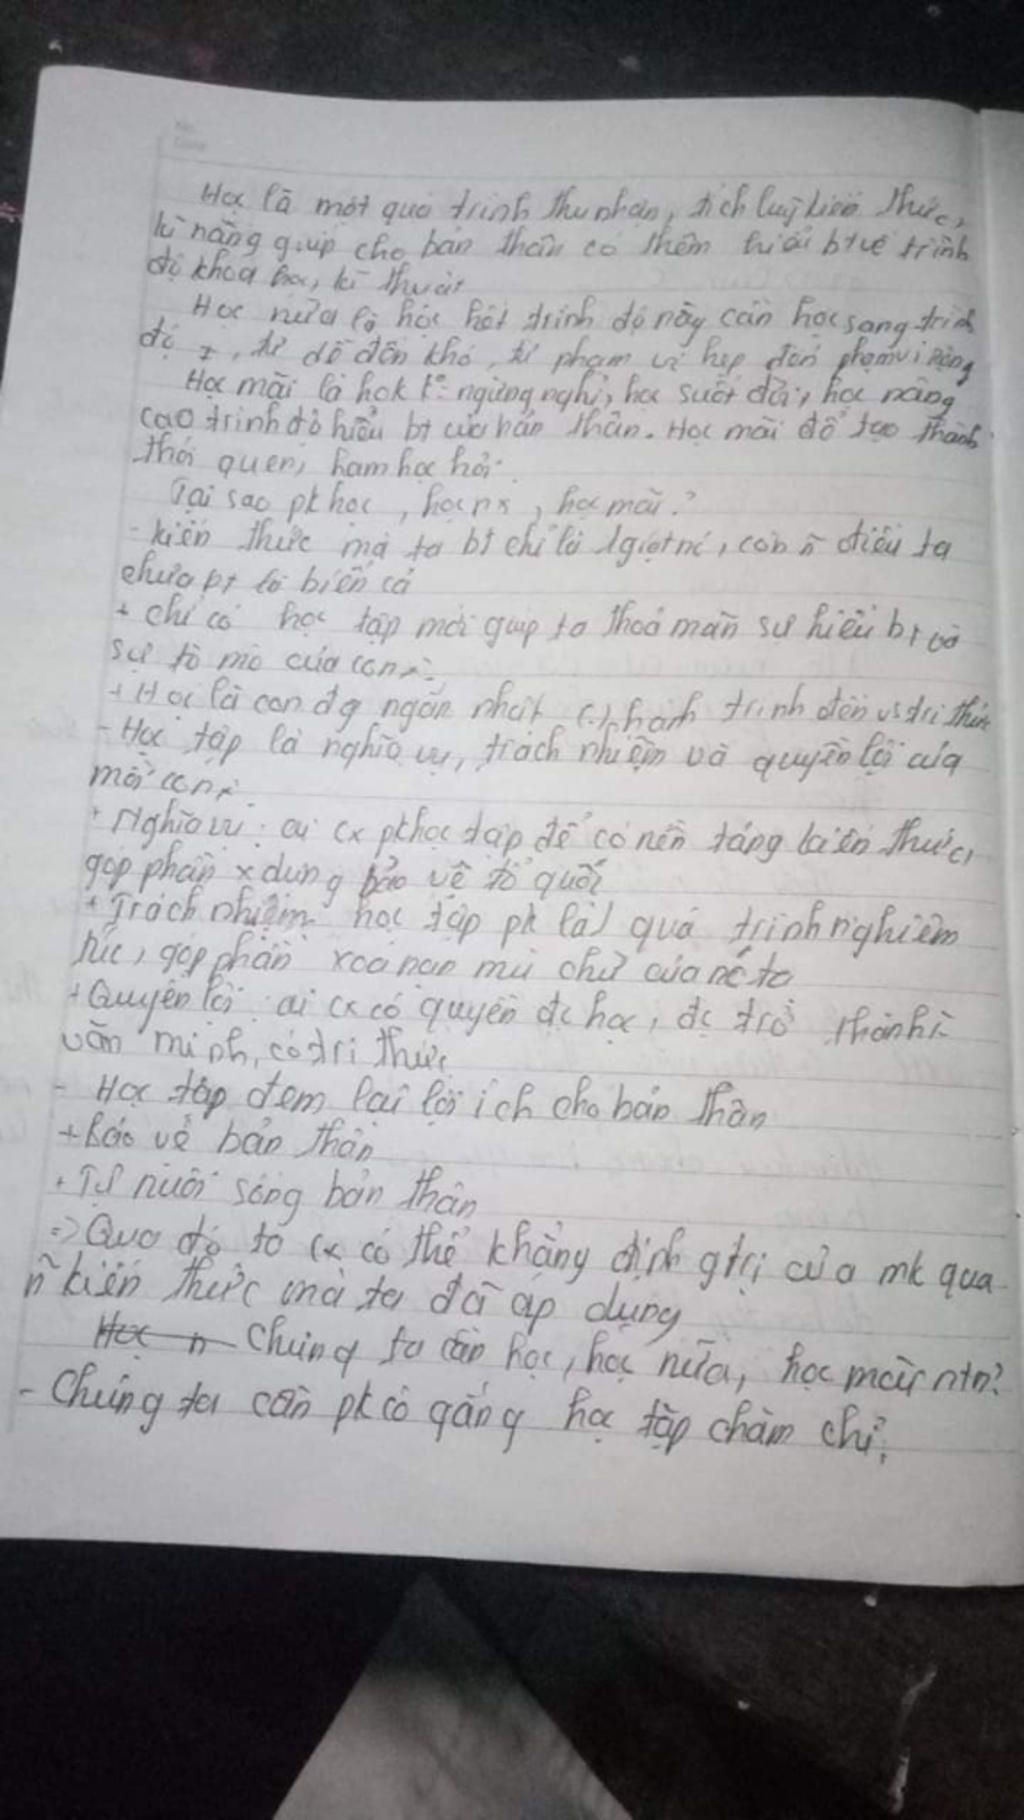 Học là một quá trình thu nhận, tích luỹ kiến thức,
kĩ năng giúp cho bản thân có thêm hiểu bt về trình
độ khoa học, kĩ thuật
Học nữa là học hết trình độ này cần học sang trình
độ ≠, từ dễ đến khó, từ phạm vi hẹp đến phạm vi rộng
Học mãi là hok ko ngừng nghỉ, học suốt đời, học nâng
cao trình độ hiểu bt của bản thân. Học mãi để tạo thành
thói quen, ham học hỏi.
Tại sao pk học, học, học mãi?
- kiến thức mà ta bt chỉ là 1 giọt nc, còn n~ điều ta
chưa bt là biển cả
+ chỉ có học tập mới giúp ta thoả mãn sự hiểu bt và
sự tò mò của con
+ Học là con đg ngắn nhất (.) hành trình đến vs tri thức
- Học tập là nghĩa vụ, trách nhiệm và quyền lợi của
mỗi con
+ Nghĩa vụ: ai cx pk học tập để có nền tảng kiến thức,
góp phần x dựng bảo vệ tổ quốc
+ Trách nhiệm học tập pk là 1 quá trình nghiêm
túc, góp phần xoá nạn mù chữ của nc ta
+ Quyền lợi: ai cx có quyền đc học, đc trở thành
văn minh, có tri thức
- Học tập đem lại lợi ích cho bản thân
+ Bảo vệ bản thân
+ Tự nuôi sống bản thân
=> Qua đó ta cx có thể khẳng định gtrị của mk qua
n~ kiến thức mà ta đã áp dụng
Học n Chúng ta cần học, học nữa, học mãi ntn?
- Chúng ta cần pk cố gắng học tập chăm chỉ,